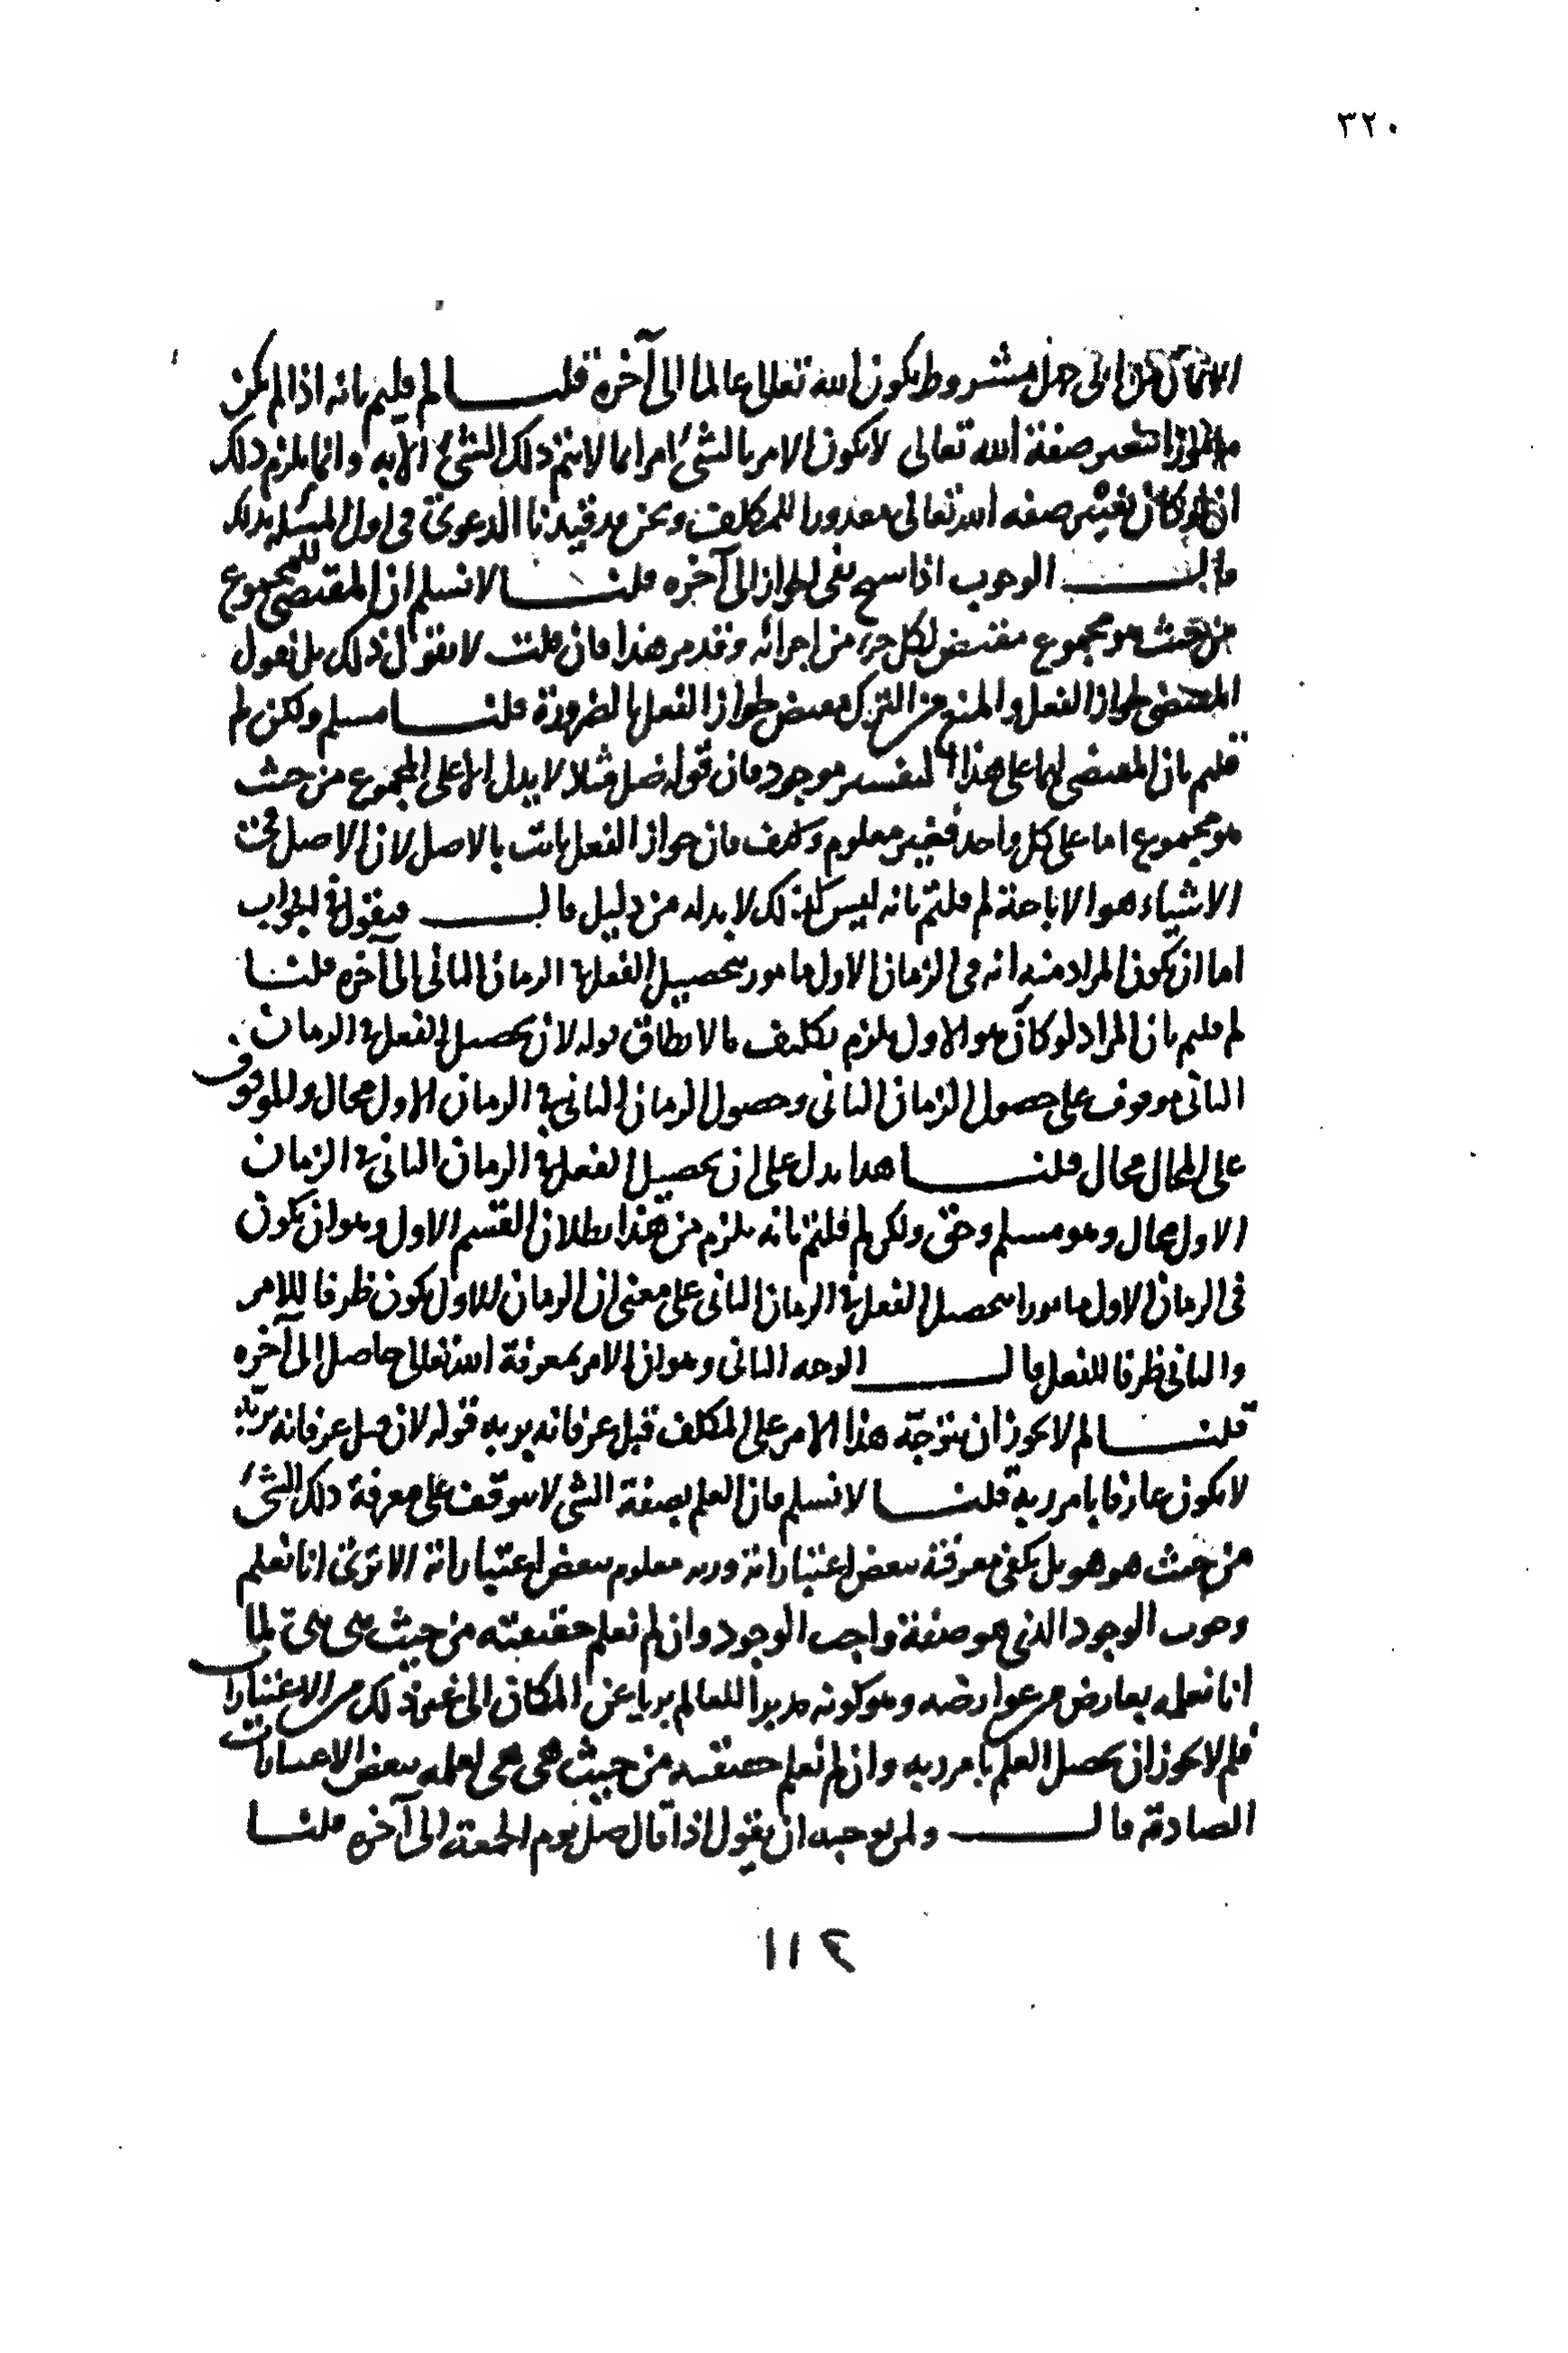 ٣٢٠
مشروط بكون الله تعالى عالما الى آخره قلنا لم قلتم بانه اذا لم يكن
صفة الله تعالى لا يكون الامر بالشئ امرا بما لا يتم ذلك الشئ الا به وانما يلزم ذلك
ان لو كان تغيير صفه الله تعالى مقدورا للمكلف ونحن قد قيدنا الدعوى فى اول المسئله بذلك
قال الوجوب اذا نسخ نفى الجواز الى آخره قلنا لا نسلم ان المقتضى للمجموع
من حيث هو مجموع مقتض لكل جزء من اجزائه وقد مر هذا فان قلت لا نقول ذلك بل نقول
المقتضى لجواز الفعل والمنع من الترك مقتض لجواز الفعل بالضرورة قلنا مسلم ولكن لم
قلتم بان المقتضى لهما على هذا التفسير موجود فان قوله صل مثلا لا يدل الا على المجموع من حيث
هو مجموع اما على كل واحد فغير معلوم وكيف فان جواز الفعل ثابت بالاصل لان الاصل فى
الاشياء هو الاباحة لم قلتم بانه ليس كذلك لا بد له من دليل قال فيقول فى الجواب
اما ان يكون المراد منه انه فى الزمان الاول مامور بتحصيل الفعل فى الزمان الثانى الى آخره قلنا
لم قلتم بان المراد لو كان هو الاول يلزم تكليف ما لا يطاق قوله لان تحصيل الفعل فى الزمان
الثانى موقوف على حصول الزمان الثانى وحصول الزمان الثانى فى الزمان الاول محال والموقوف
على المحال محال قلنا هذا يدل على ان تحصيل الفعل فى الزمان الثانى فى الزمان
الاول محال وهو مسلم وحق ولكن لم قلتم بانه يلزم من هذا بطلان القسم الاول وهو ان يكون
فى الزمان الاول مامورا بتحصيل الفعل فى الزمان الثانى على معنى ان الزمان الاول يكون ظرفا للامر
والثانى ظرفا للفعل قال الوجه الثانى وهو ان الامر بمعرفة الله تعالى حاصل الى آخره
قلنا لم لا يجوز ان يتوجه هذا الامر على المكلف قبل عرفانه بربه قوله لان قبل عرفانه بربه
لا يكون عارفا بامر ربه قلنا لا نسلم فان العلم بصفة الشى لا يتوقف على معرفة ذلك الشئ
من حيث هو هو بل يكفى معرفته ببعض اعتباراته وربه معلوم ببعض اعتباراته الا ترى انا نعلم
وجوب الوجود الذى هو صفة واجب الوجود وان لم نعلم حقيقته من حيث هى هى لما
انا نعلمه بعارض من عوارضه وهو كونه مدبرا للعالم بريا عن المكان الى غير ذلك من الاعتبارات
فلم لا يجوز ان يحصل العلم بامر ربه وان لم نعلم حقيقته من حيث هى هى لعلمه ببعض الاعتبارات
الصادقة قال ولمن يوجبه ان يقول اذا قال صل يوم الجمعة الى آخره قلنا
١١٢